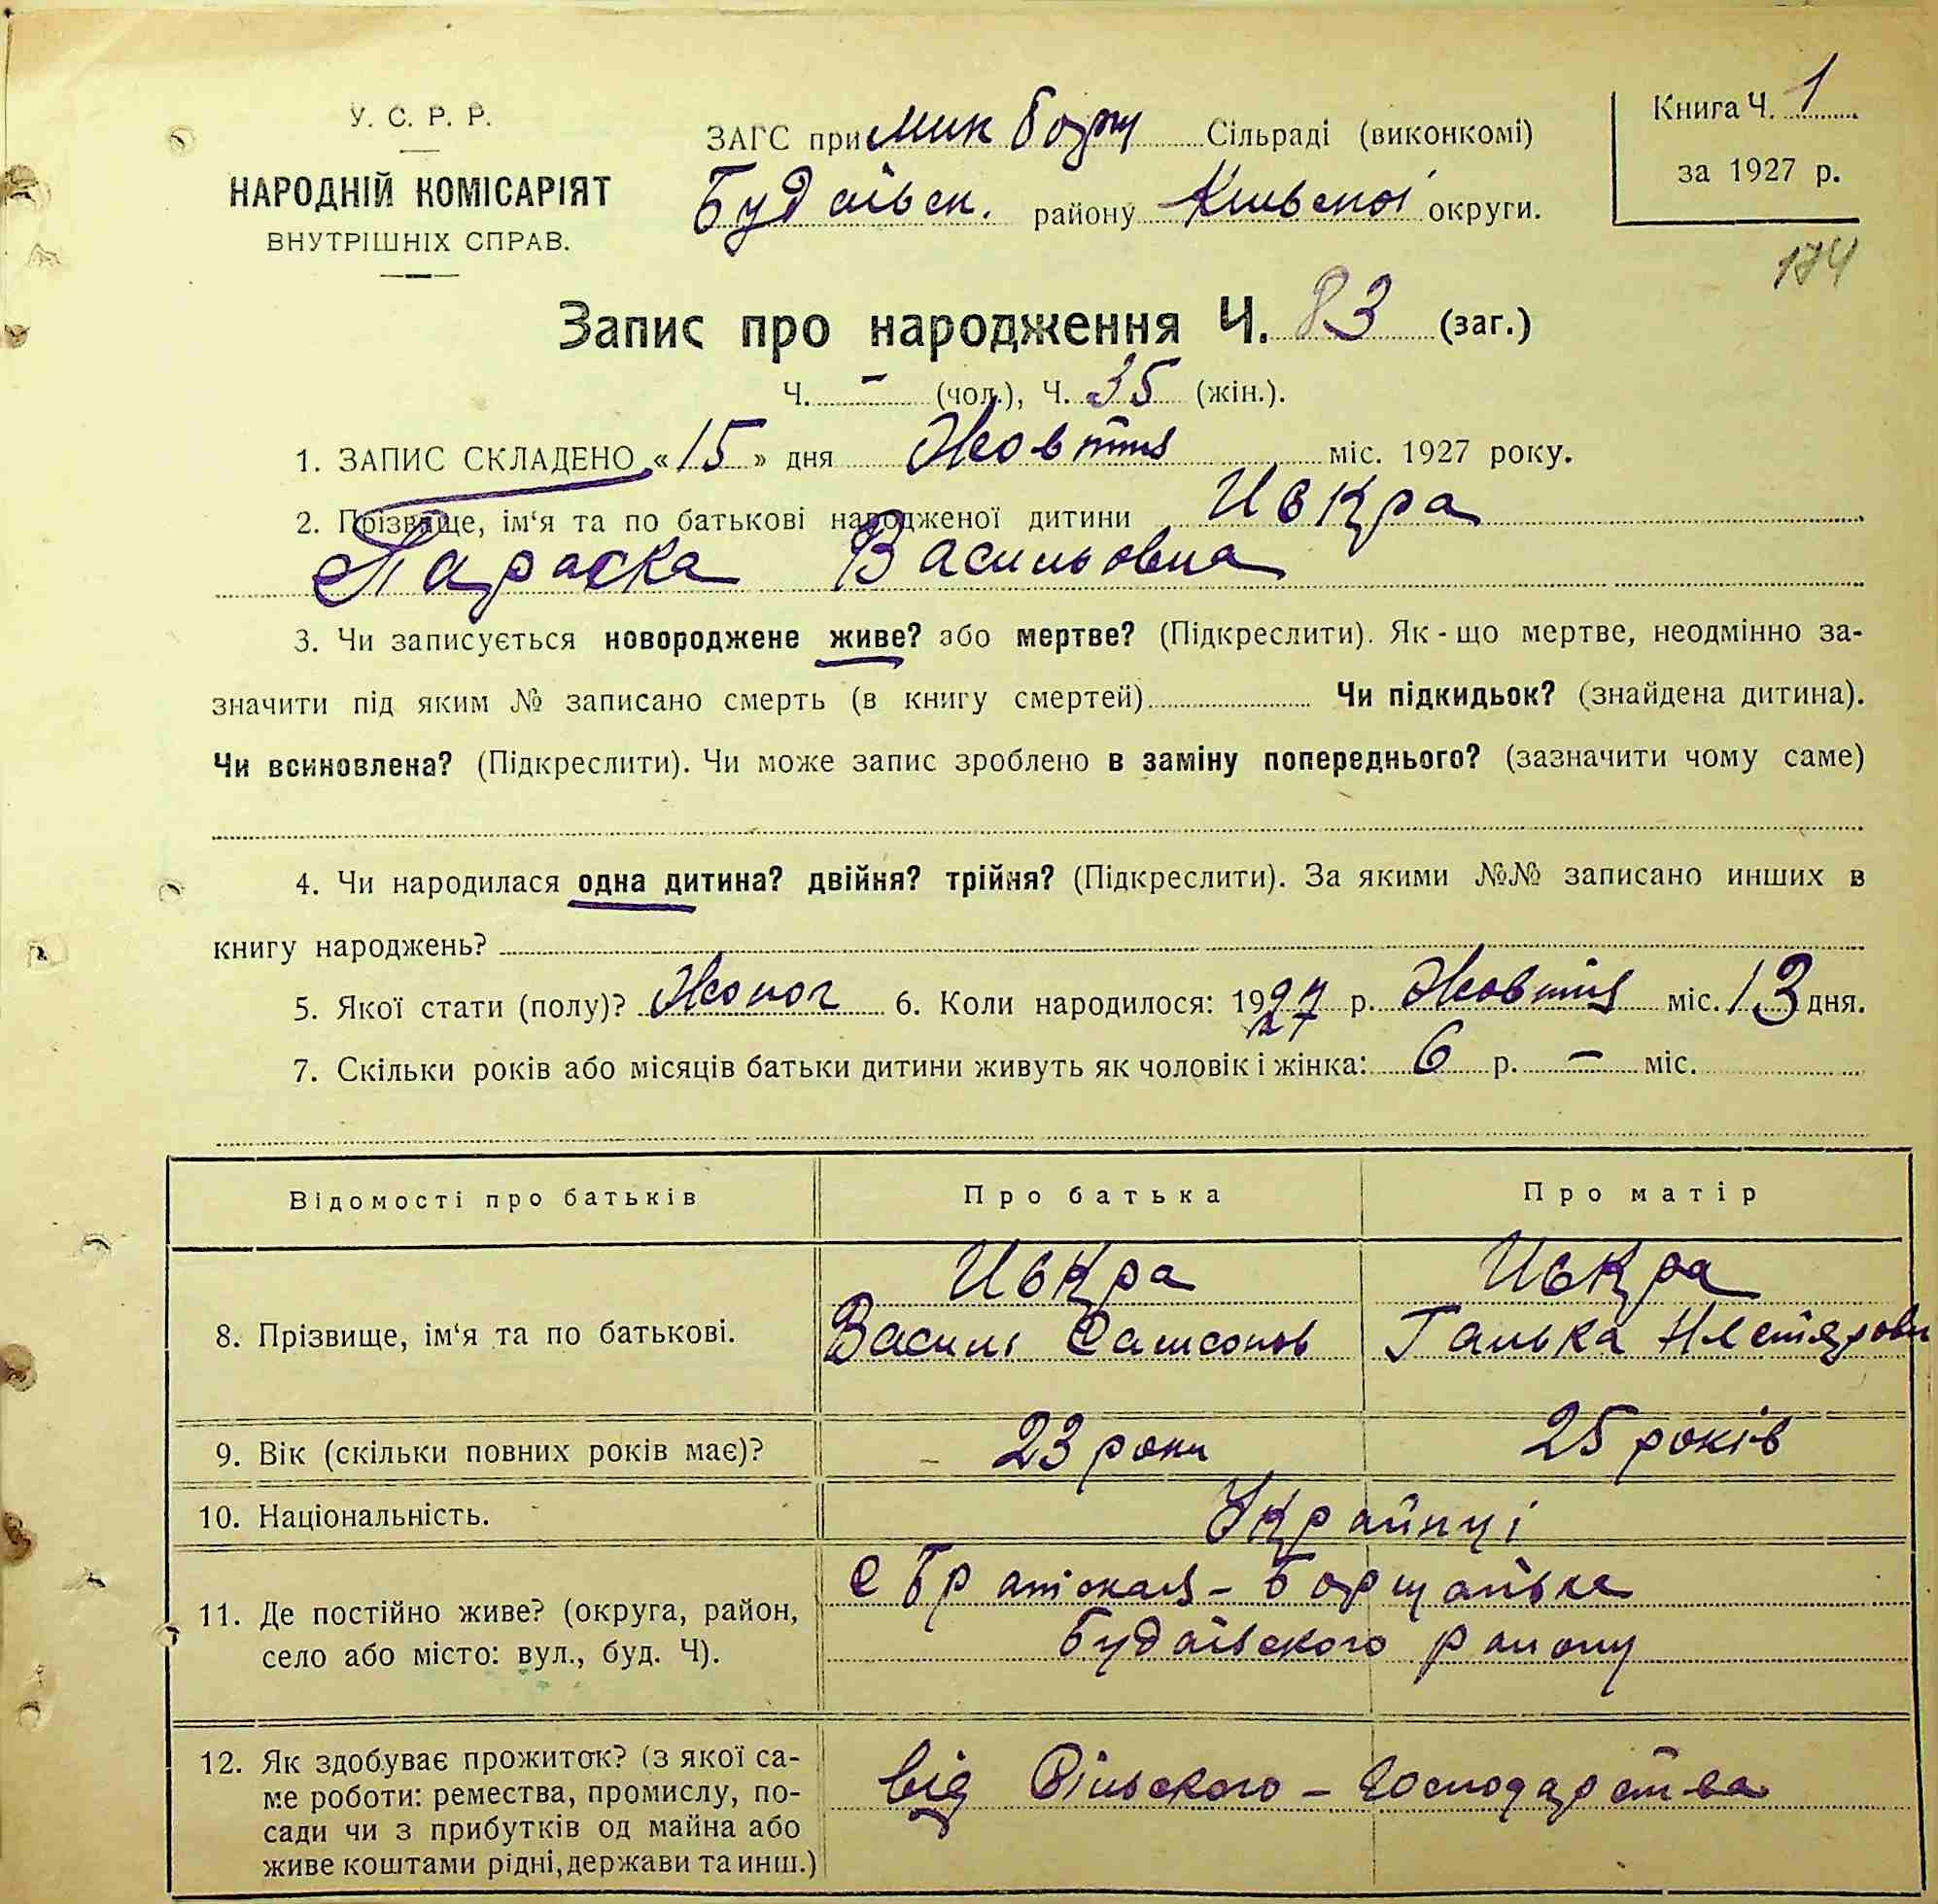 У. С. Р. Р.
НАРОДНІЙ КОМІСАРІЯТ
ВНУТРІШНІХ СПРАВ.
ЗАГС при Мик Борщ Сільраді (виконкомі)
Будаївськ. району Київської округи.
Книга Ч. 1
за 1927 р.
174
Запис про народження Ч. 83 (заг.)
Ч. – (чол.), Ч. 35 (жін.).
1. ЗАПИС СКЛАДЕНО «15» дня Жовтня міс. 1927 року.
2. Прізвище, ім‘я та по батькові народженої дитини Иськра
Параска Васильовна
3. Чи записується новороджене живе? або мертве? (Підкреслити). Як-що мертве, неодмінно за-
значити під яким № записано смерть (в книгу смертей) Чи підкидьок? (знайдена дитина).
Чи всиновлена? (Підкреслити). Чи може запис зроблено в заміну попереднього? (зазначити чому саме)
4. Чи народилася одна дитина? двійня? трійня? (Підкреслити). За якими №№ записано инших в
книгу народжень?
5. Якої стати (полу)? Жоноч 6. Коли народилося: 1927 р. Жовтня міс. 13 дня.
27
7. Скільки років або місяців батьки дитини живуть як чоловік і жінка: 6 р. – міс.
Відомості про батьків Про батька Про матір
8. Прізвище, ім‘я та по батькові.
Иськра
Василь Самсонов
Иськра
Ганька Нестяровн
9. Вік (скільки повних років має)? 23 роки 25 років
10. Національність. Українці
11. Де постійно живе? (округа, район,
село або місто: вул., буд. Ч).
с Братіская-Борщаївка
Будаївского району
12. Як здобуває прожиток? (з якої са-
ме роботи: ремества, промислу, по-
сади чи з прибутків од майна або
живе коштами рідні, держави та инш.)
від Сільского-Господарства